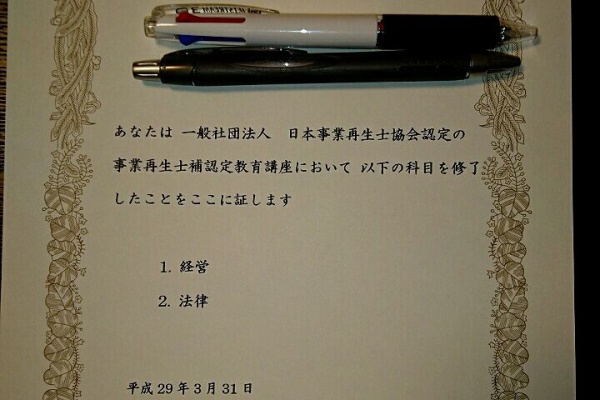 あなたは 一般社団法人　日本事業再生士協会認定の
事業再生士補認定教育講座において 以下の科目を修了
したことをここに証します
1. 経営
2. 法律
平成 29 年 3 月 31 日